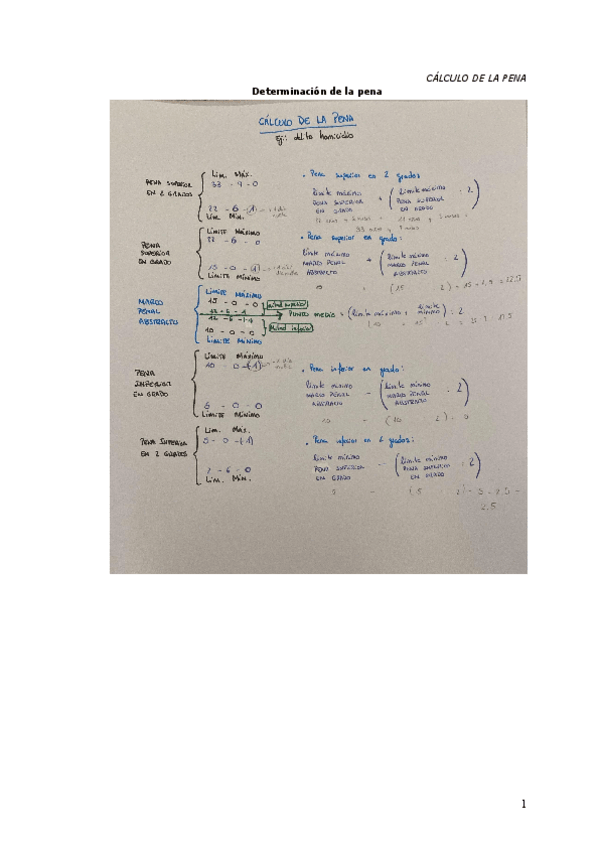 CÁLCULO DE LA PENA
Determinación de la pena
CÁLCULO DE LA PENA
Ej: delito homicidio
PENA SUPERIOR
EN 2 GRADOS
LIM. MÁX.
33 - 9 - 0
22 - 6 - (1)
LIM. MIN.
· Pena superior en 2 grados
límite máximo
PENA SUPERIOR
EN GRADO
+
(límite máximo
PENA SUPERIOR
EN GRADO
: 2)
PENA
SUPERIOR
EN GRADO
LÍMITE MÁXIMO
22 - 6 - 0
15 - 0 - (1)
LÍMITE MÍNIMO
· Pena superior en grado:
límite máximo
MARCO PENAL
ABSTRACTO
+
(límite máximo
MARCO PENAL
ABSTRACTO
: 2)
(15 2) = 15 + 7,5 = 22.5
MARCO
PENAL
ABSTRACTO
LÍMITE MÁXIMO
15 - 0 - 0
mitad superior
10 - 0 - 0
mitad inferior
LÍMITE MÍNIMO
PUNTO MEDIO = (límite máximo + límite mínimo) : 2
PENA
INFERIOR
EN GRADO
LÍMITE MÁXIMO
10 - 0 - (-1)
5 - 0 - 0
LÍMITE MÍNIMO
· Pena inferior en grado:
límite mínimo
MARCO PENAL
ABSTRACTO
-
(límite mínimo
MARCO PENAL
ABSTRACTO
: 2)
10 - (10 2) = 5
PENA INFERIOR
EN 2 GRADOS
LIM. MÁX.
5 - 0 - (-1)
2 - 6 - 0
LIM. MIN.
· Pena inferior en 2 grados:
límite mínimo
PENA INFERIOR
EN GRADO
-
(límite mínimo
PENA INFERIOR
EN GRADO
: 2)
2.5
1